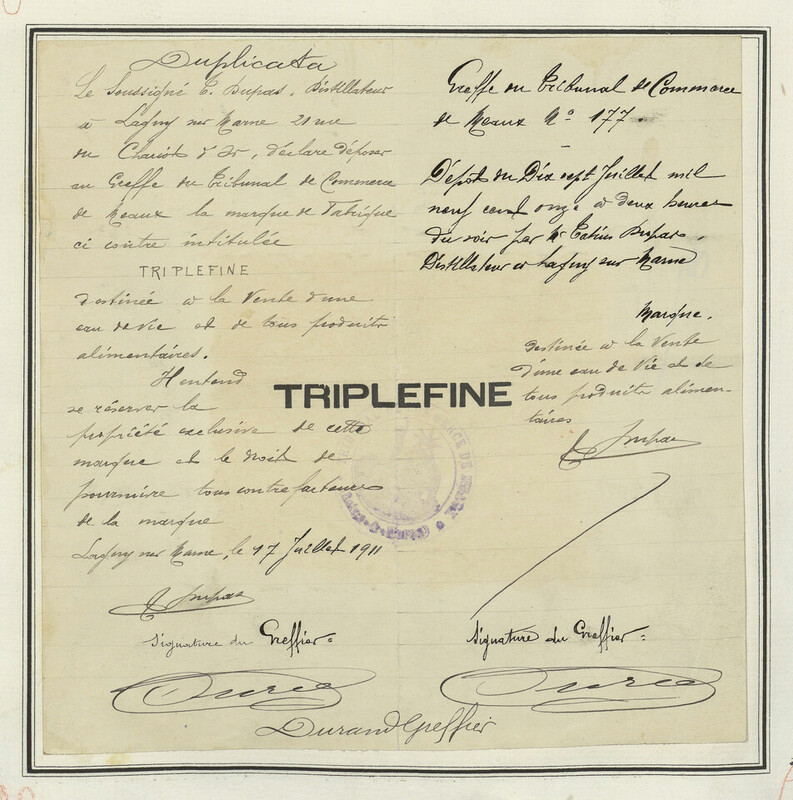 Duplicata
Le Soussigné E. Dupas, Distillateur
à Lagny sur Marne 21 rue
du Chariot d'Or, déclare déposer
au Greffe du Tribunal de Commerce
de Meaux la marque de Fabrique
ci contre intitulée
TRIPLEFINE
destinée à la Vente d'une
eau de vie et de tous produits
alimentaires.
Il entend
se réserver la
propriété exclusive de cette
marque et le droit de
poursuivre tous contrefacteurs
de la marque
Lagny sur Marne, le 17 Juillet 1911
E Dupas
Signature du Greffier =
TRIPLEFINE
Greffe du Tribunal de Commerce
de Meaux No 177.
Dépôt du Dix sept Juillet mil
neuf cent onze à deux heures
du soir par Mr Dupas,
Distillateur à Lagny sur Marne
Marque.
destinée à la Vente
d'une eau de vie et de
tous produits alimen-
taires
E Dupas
Signature du Greffier =
Durand Greffier